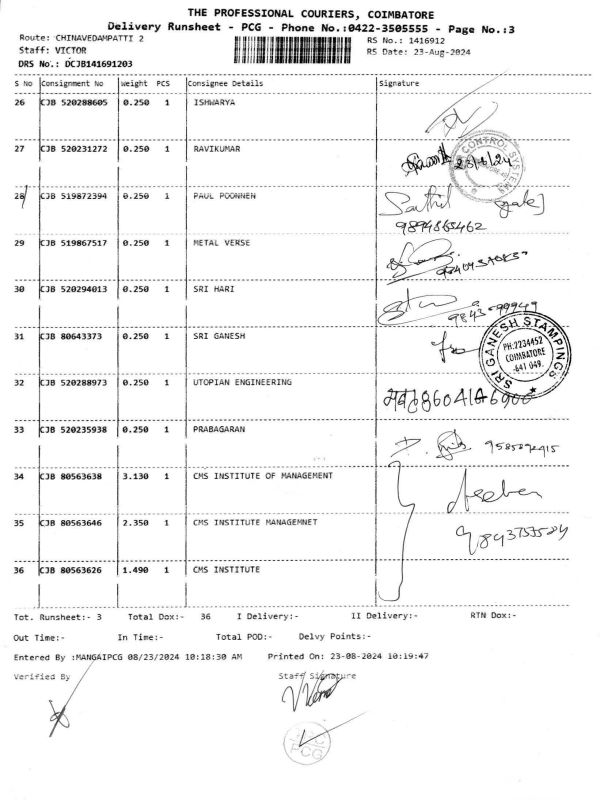 THE PROFESSIONAL COURIERS, COIMBATORE
Delivery Runsheet - PCG - Phone No.:0422-3505555 - Page No.:3
Route: CHINAVEDAMPATTI 2 RS No.: 1416912
Staff: VICTOR RS Date: 23-Aug-2024
DRS No.: DCJB141691203
S No Consignment No Weight PCS Consignee Details Signature
26 CJB 520288605 0.250 1 ISHWARYA
27 CJB 520231272 0.250 1 RAVIKUMAR
CONTROL SYSTEMS
28 CJB 519872394 0.250 1 PAUL POONNEN
9894865462
29 CJB 519867517 0.250 1 METAL VERSE
30 CJB 520294013 0.250 1 SRI HARI
31 CJB 80643373 0.250 1 SRI GANESH
SRI GANESH STAMPINGS
PH:2234452
COIMBATORE
-641 049.
32 CJB 520288973 0.250 1 UTOPIAN ENGINEERING
33 CJB 520235938 0.250 1 PRABAGARAN
34 CJB 80563638 3.130 1 CMS INSTITUTE OF MANAGEMENT
35 CJB 80563646 2.350 1 CMS INSTITUTE MANAGEMNET
36 CJB 80563626 1.490 1 CMS INSTITUTE
Tot. Runsheet:- 3 Total Dox:- 36 I Delivery:- II Delivery:- RTN Dox:-
Out Time:- In Time:- Total POD:- Delvy Points:-
Entered By :MANGAIPCG 08/23/2024 10:18:30 AM Printed On: 23-08-2024 10:19:47
Verified By Staff Signature
PCG